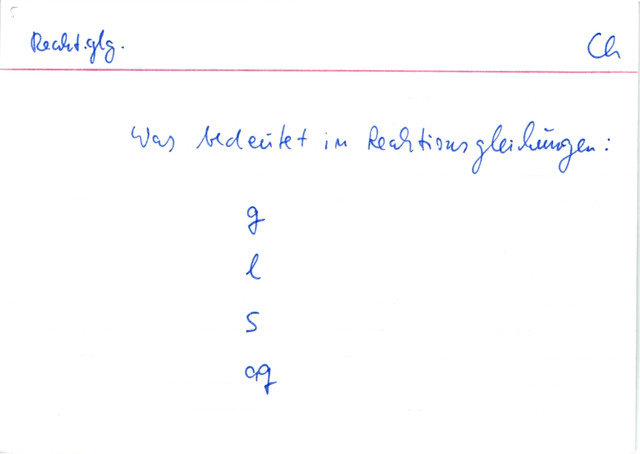 Reakt.glg.
Ch
Was bedeutet in Reaktionsgleichungen:
g
l
s
aq